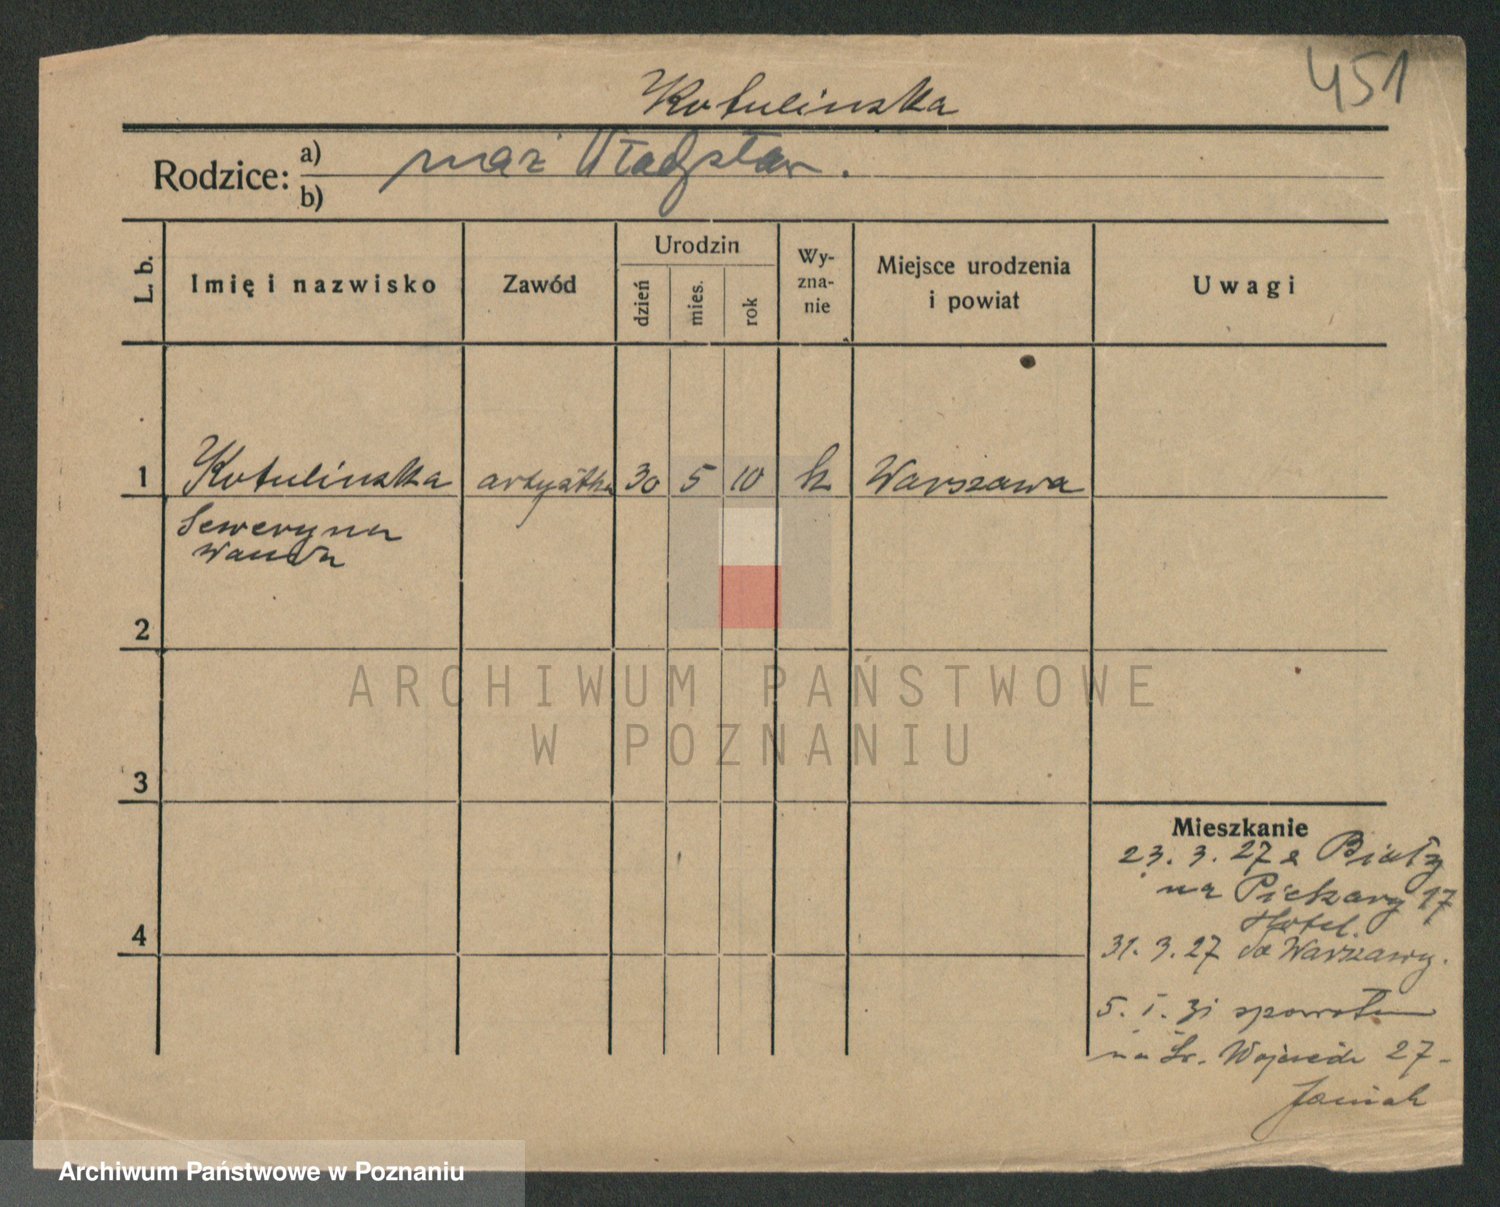 451
Kotulinska
Rodzice:
a) mąż Władysław.
b)
L. b.
Imię i nazwisko
Zawód
Urodzin
dzień
mies.
rok
Wy-
zna-
nie
Miejsce urodzenia
i powiat
Uwagi
1 Kotulinska artystka 30 5 10 k Warszawa
Seweryna
Wanda
2
3
4
Mieszkanie
23. 3. 27 z Biały
na Piekary 17
Hotel.
31. 3. 27 do Warszawy.
5. I. 31 spowrotem
na Św. Wojciech 27-
Janiak
ARCHIWUM PAŃSTWOWE
W POZNANIU
Archiwum Państwowe w Poznaniu